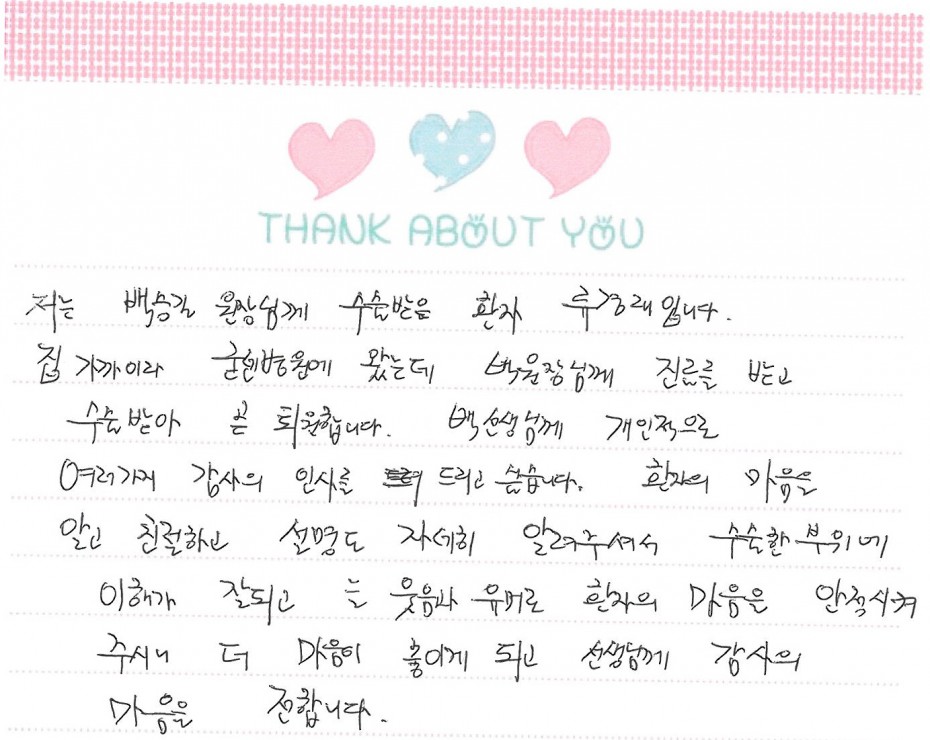 THANK ABOUT YOU
저는 백승길 원장님께 수술받음 환자 류경래입니다.
집 가까이라 굳센병원에 왔는데 백원장님께 진료를 받고
수술받아 곧 퇴원합니다. 백선생님께 개인적으로
여러가지 감사의 인사를 드리고 싶습니다. 환자의 마음을
알고 친절하고 설명도 자세히 알려주셔서 수술한 부위에
이해가 잘되고 늘 웃음과 유머로 환자의 마음을 안정시켜
주시니 더 마음이 좋이게 되고 선생님께 감사의
마음을 전합니다.